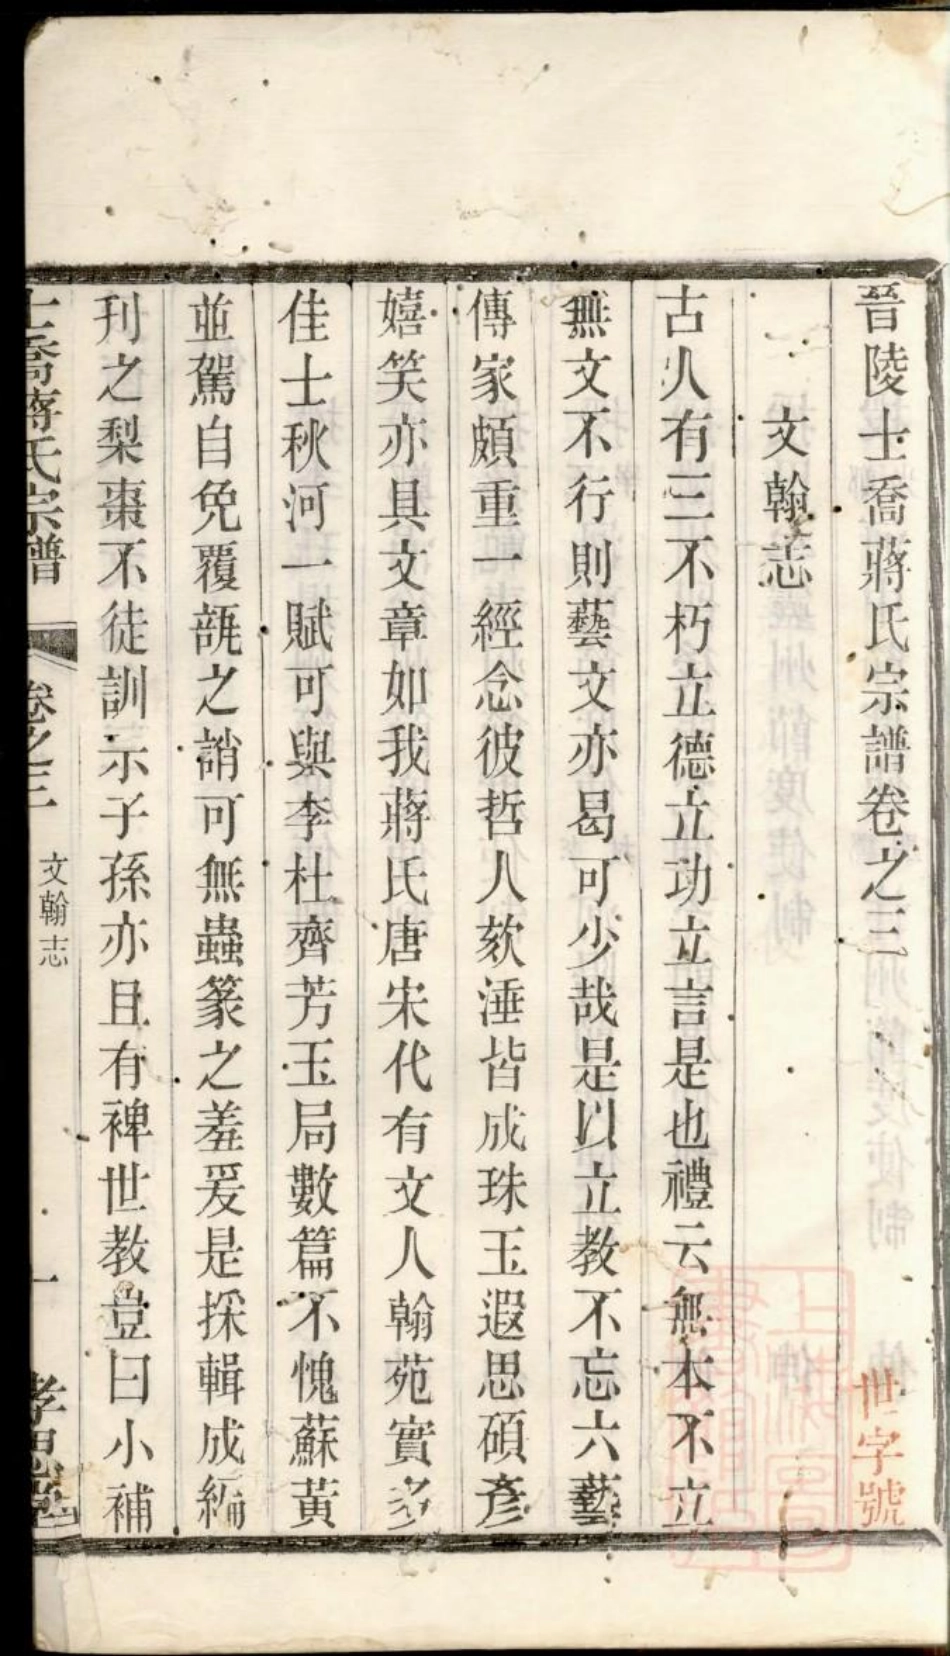 晉陵士喬蔣氏宗譜卷之三
世字號
文翰志
古人有三不朽立德立功立言是也禮云無本不立
無文不行則藝文亦曷可少哉是以立教不忘六藝
傳家頗重一經念彼哲人欬涶皆成珠玉遐思碩彥
嬉笑亦具文章如我蔣氏唐宋代有文人翰苑實多
佳士秋河一賦可與李杜齊芳玉局數篇不愧蘇黃
並駕自免覆瓿之誚可無蟲篆之羞爰是採輯成編
刊之梨棗不徒訓示子孫亦且有裨世教豈曰小補
士喬蔣氏宗譜
卷之三
文翰志
一
孝思堂